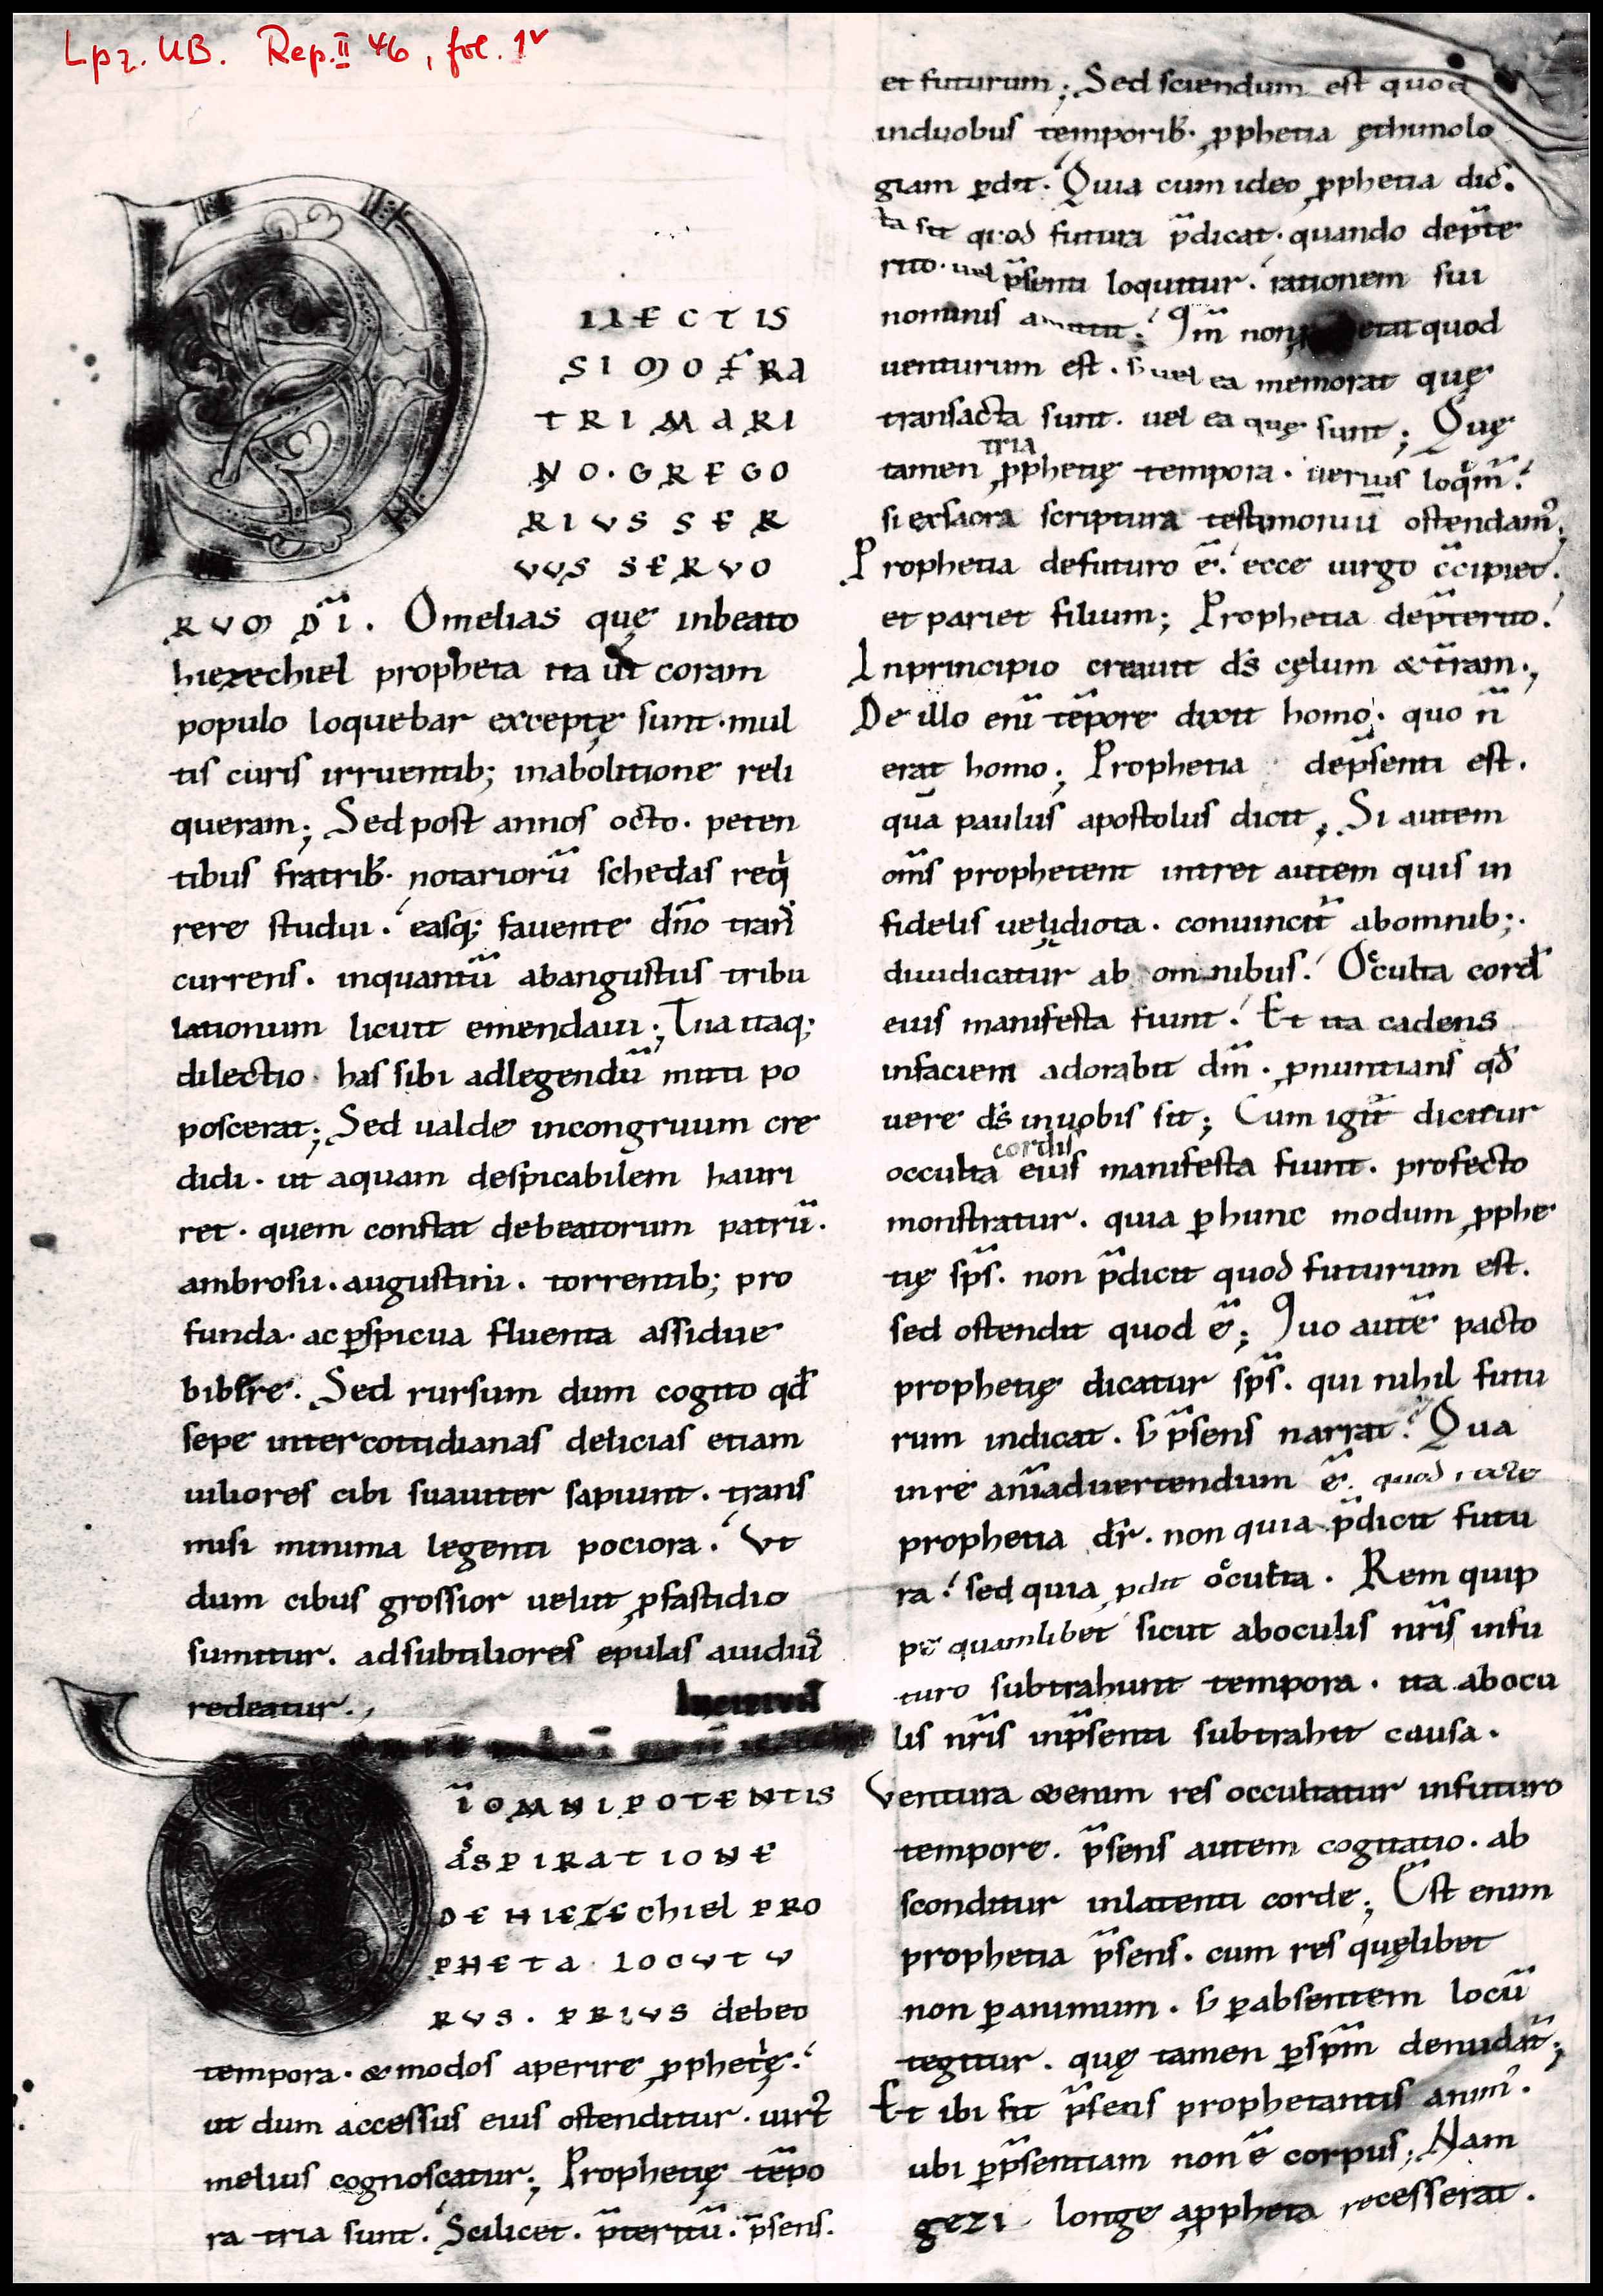 Lpz. UB. Rep. II 46, fol. 1v
DILECTIS
SIMO FRA
TRI MARI
NO. GREGO
RIUS SER
VUS SERVO
RUM DĪ. Omelias quę inbeato
hiezechiel propheta ita ut coram
populo loquebar exceptę sunt. mul
tis curis irruentib; inabolitione reli
queram; Sed post annos octo. peten
tibus fratrib. notariorū schedas req
rere studui. easq; fauente dn̄o tranſ
currens. inquantū abangustiis tribu
lationum licuit emendaui; Tua itaq;
dilectio has sibi adlegendū mitti po
poscerat; Sed ualde incongruum cre
didi. ut aquam despicabilem hauri
ret. quem constat debeatorum patrū.
ambrosii. augustini. torrentib; pro
funda. ac p̲spicua fluenta assidue
bibere. Sed rursum dum cogito qđ
sepe inter cottidianas delicias etiam
uiliores cibi suauiter sapiunt. trans
misi minima legenti pociora. Ut
dum cibus grossior uelut p̲fastidio
sumitur. adsubtiliores epulas auidiuꝰ
redeatur.
DĪ OMNIPOTENTIS
ASPIRATIONE
DE HIEZEchiel PRO
PHETA LOCUTU
RUS. PRIUS debeo
tempora. & modos aperire p̲phetię.
ut dum accessus eius ostenditur. uirtꝰ
melius cognoscatur; Prophetię tēpo
ra tria sunt. Scilicet. p̄teritū. p̄sens.
et futurum; Sed sciendum est quod
induobus temporib. p̲phetia ęthimolo
giam p̲dit. Quia cum ideo p̲phetia dic
ta sit quod futura p̄dicat. quando dep̄te
rito. uel p̄senti loquitur. rationem sui
nominis amittit; Qm̄ non etat quod
uenturum est. s; uel ea memorat quę
transacta sunt. uel ea quę sunt; Quę
tria
tamen p̲phetię tempora. uerius loqm̄.
si exsacra scriptura testimoniū ostendamꝰ;
Prophetia defuturo ē. ecce uirgo c̄cipiet.
et pariet filium; Prophetia dep̄terito.
Inprincipio creauit ds̄ cęlum & tr̄am;
De illo enī tēpore dixit homo. quo n̄
erat homo; Prophetia dep̄senti est.
quā paulus apostolus dicit; Si autem
om̄s prophetent intret autem quis in
fidelis uel idiota. conuincit̄ abomnib;.
diiudicatur ab omnibus. Occulta cord
eius manifesta fiunt. Et ita cadens
infaciem adorabit dm̄. p̲nuntians qđ
uere ds̄ inuobis sit; Cum igit̄ dicitur
cordis
occulta eius manifesta fiunt. profecto
monstratur. quia p̲hunc modum p̲phe
tię sp̄s. non p̄dicit quod futurum est.
sed ostendit quod ē; Quo autē pacto
prophetię dicatur sp̄s. qui nihil futu
rum indicat. s; p̄sens narrat. Qua
inre anīaduertendum ē. quod recte
prophetia dr̄. non quia p̄dicit futu
ra. sed quia p̲dit occulta. Rem quip
pe quamlibet sicut aboculis nr̄is infu
turo subtrahunt tempora. ita abocu
lis nr̄is inp̄senti subtrahit causa.
Ventura &enim res occultatur infuturo
tempore. p̄sens autem cogitatio. ab
sconditur inlatenti corde; Est enim
prophetia p̄sens. cum res quęlibet
non p̲animum. s; p̲absentem locū
tegitur. quę tamen p̲sp̄m denudat̄;
Et ibi fit p̄sens prophetantis animꝰ.
ubi p̲p̄sentiam non ē corpus; Nam
gezi longe ap̲pheta recesserat.